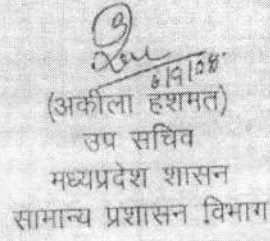 6/9/08.
(अकीला हशमत)
उप सचिव
मध्यप्रदेश शासन
सामान्य प्रशासन विभाग